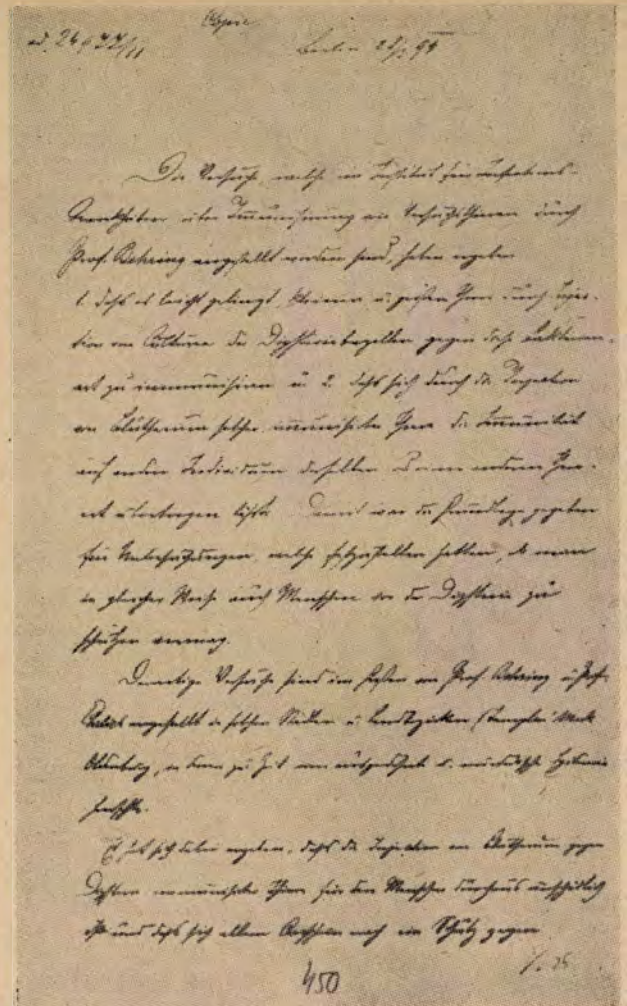 Copie
Berlin
Die Versuche, welche im Institut für Infections-
krankheiten über Immunisirung von Versuchsthieren durch
Prof. Behring angestellt worden sind, haben ergeben
1. daß es leicht gelingt, kleinere u. größere Thiere durch Injec-
tion von Culturen der Diphtheriebazillen gegen diese Bakterien-
art zu immunisiren u. 2. daß sich durch die Injection
von Blutserum solcher immunisirter Thiere die Immunität
auf andere Individuen derselben einer anderen Thier-
art übertragen läßt. Damit war die Grundlage gegeben
für Untersuchungen, welche festzustellen hatten, ob man
in gleicher Weise auch Menschen vor der Diphtherie zu
schützen vermag.
Derartige Versuche sind im von Prof. Behring u. Prof.
angestellt in solchen Städten u.
zur Zeit eine u.
herrschte.
Es hat sich dabei ergeben, daß die Injection von Blutserum gegen
Diphtherie immunisirter Thiere für den Menschen durchaus unschädlich
ist und daß sich allem Anschein nach ein Schutz gegen
450